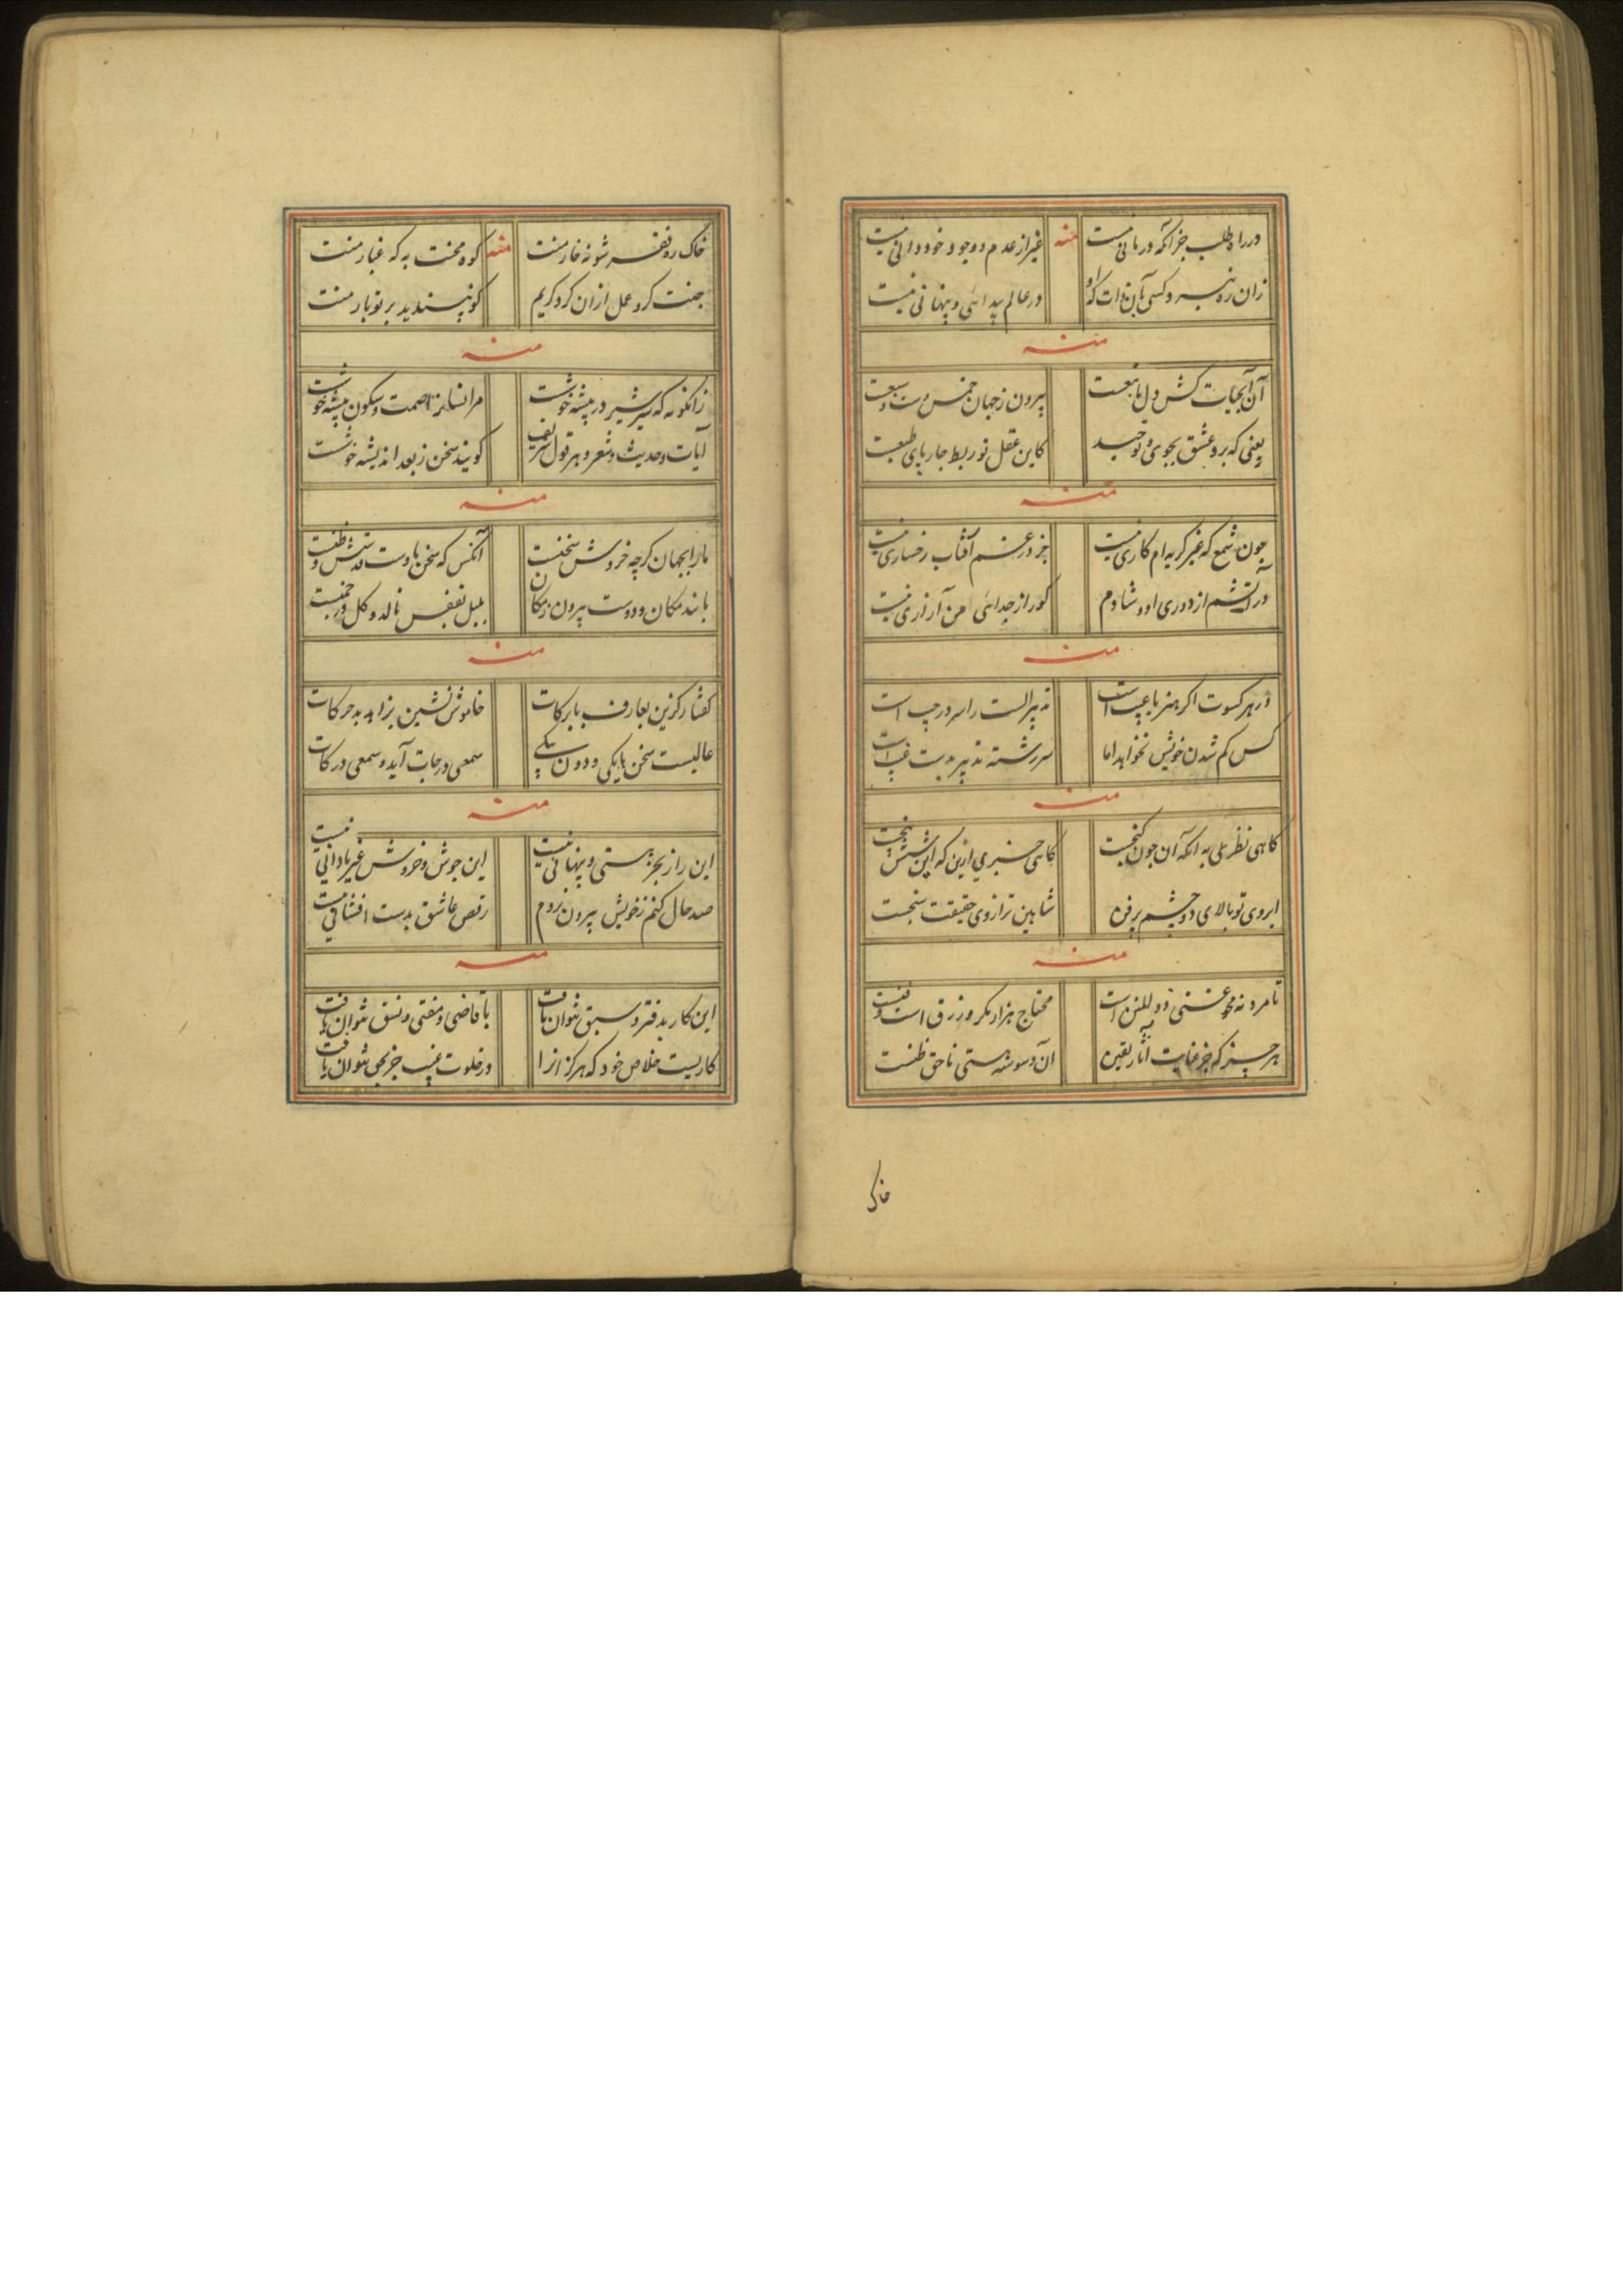 در راه طلب جز آنکه درمانی نیست منه غیر از عدم و وجود خود دانی نیست
زان ره نبرد کسی بآن ذات که او در عالم پیدائی و پنهانی نیست
منه
آن آبحیات کش دل ما نبعست بیرون ز جهان خمس و ست و سبعست
یعنی که برو عشق بجوی و توحید کاین عقل تو ربط چارپای طبعست
منه
چون شمع که غیر گریه ام کاری نیست جز در غم آفتاب رخساری نیست
در آتشم از دوری او و شادم کورا ز جدائی من آزاری نیست
منه
در هر کسوت اگر هنر یا عیب است تدبیر الست را سر در جیب است
کس گم شدن خویش نخواهد اما سررشته تدبیر بدست غیب است
منه
گاهی نظر علی به آنکه آن چون گنجست گاهی خبری ازین که این شش پنجست
ابروی تو بالای دو چشم پر فن شاهین ترازوی حقیقت سنجست
منه
تا مرد نه محو غنی ذو المنن است محتاج هزار مکر و زرق است و فنست
هر چیز که جز عنایت آثار یقین آن وسوسه هستی ناحق ظنست
خاک
خاک ره فقر شو نه خار منت منه کوه محنت به که غبار منت
جنت کرو عمل ازان کرد کریم کو نپسندید بر تو بار منت
منه
زانگونه که شیر شیر در بیشه خوشت مر انسانرا صمت و سکون پیشه خوشت
آیات و حدیث و شعر و هر قول شریف گویند سخن ز بعد اندیشه خوشت
منه
ما را بجهان گرچه خروش سخنست آنکس که سخن باوست
بلبل بقفس نالد و گل در چمنست
منه
گفتار گزین بعارف با برکات خاموش نشین بزاهد بد حرکات
عالیست سخن با یکی و دون با یکی سمعی درجات آید و سمعی درکات
منه
این راز بجز هستی و پنهانی نیست این جوش و خروش غیر نادانی نیست
صد حال کنم ز خویش بیرون نروم رقص عاشق بدست افشانی نیست
منه
این کار بدفتر و سبق نتوان یافت با قاضی و مفتی و نسق نتوان یافت
کاریست خلاص خود که هرگز آنرا در خلوت غیب جز بحق نتوان یافت